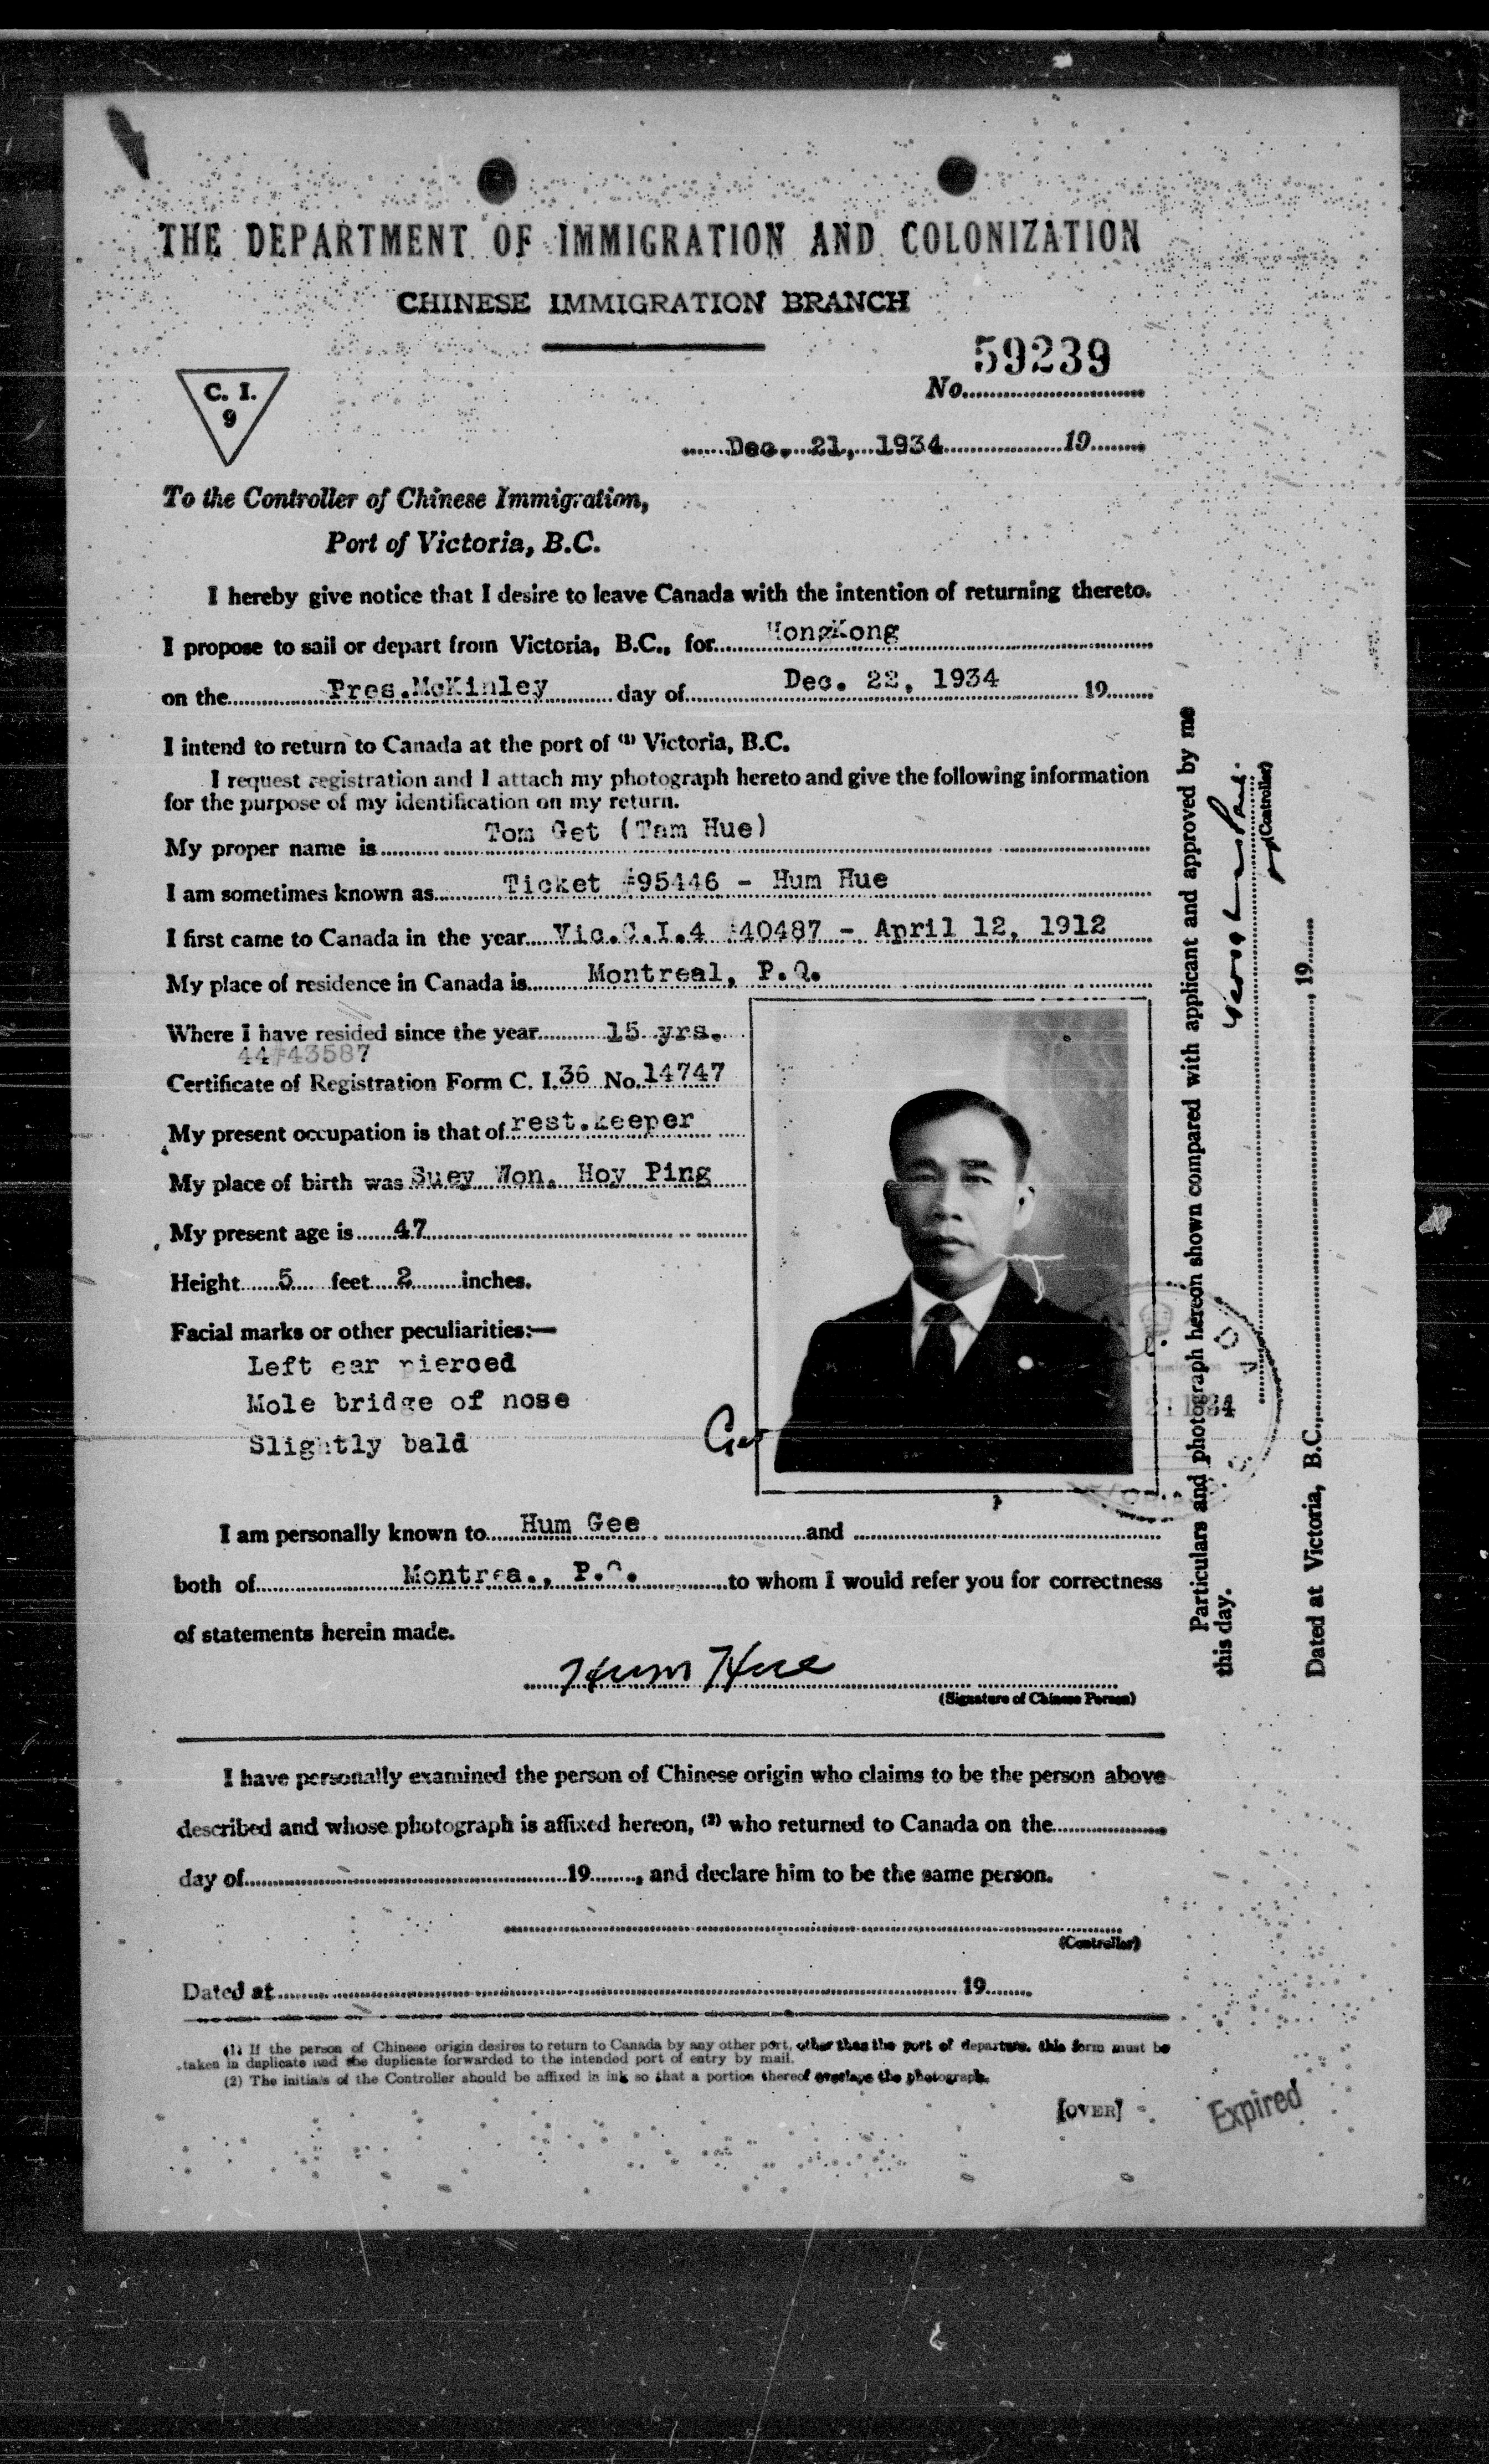 THE DEPARTMENT OF IMMIGRATION AND COLONIZATION
CHINESE IMMIGRATION BRANCH
C. I.
9
59239
No.
Dec. 21, 1934 19
To the Controller of Chinese Immigration,
Port of Victoria, B.C.
I hereby give notice that I desire to leave Canada with the intention of returning thereto.
I propose to sail or depart from Victoria, B.C., for HongKong
on the Pres.McKinley day of Dec. 22, 1934 19
I intend to return to Canada at the port of (1) Victoria, B.C.
I request registration and I attach my photograph hereto and give the following information
for the purpose of my identification on my return.
My proper name is Tom Get (Tam Hue)
I am sometimes known as Ticket #95446 - Hum Hue
I first came to Canada in the year Vic.C.I.4 #40487 - April 12, 1912
My place of residence in Canada is Montreal, P.Q.
Where I have resided since the year 15 yrs.
44#43587
Certificate of Registration Form C. I. 36 No. 14747
My present occupation is that of rest.keeper
My place of birth was Suey Won, Hoy Ping
My present age is 47
Height 5 feet 2 inches.
Facial marks or other peculiarities:—
Left ear pierced
Mole bridge of nose
Slightly bald
I am personally known to Hum Gee and
both of Montrea., P.Q. to whom I would refer you for correctness
of statements herein made.
Hum Hue
(Signature of Chinese Person)
I have personally examined the person of Chinese origin who claims to be the person above
described and whose photograph is affixed hereon, (2) who returned to Canada on the
day of 19, and declare him to be the same person.
(Controller)
Dated at 19
(1) If the person of Chinese origin desires to return to Canada by any other port, other than the port of departure, this form must be
taken in duplicate and the duplicate forwarded to the intended port of entry by mail.
(2) The initials of the Controller should be affixed in ink so that a portion thereof overlaps the photograph.
[OVER]
Expired
Particulars and photograph hereon shown compared with applicant and approved by me
this day.
(Controller)
Dated at Victoria, B.C., 19